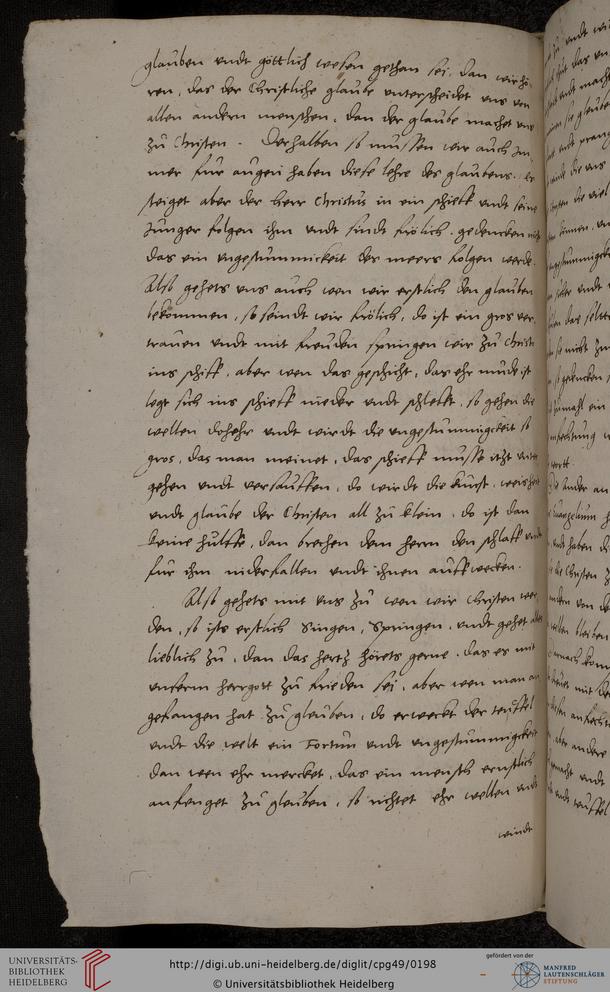 glauben vndt göttlich wesen gethan sei, dan wir hö
ren, das der Christliche glaube vnterscheidet vns von
allen andern menschen, dan der glaube machet vns
zu Christen. Derhalben so mussen wir auch Im
mer fur augen haben diese lehre des glaubens. Er
steiget aber der herr Christus in ein schieff vndt seine
Junger folgen ihm vndt sindt frölich, gedencken nit
das ein vngestummickeit des meers folgen werde.
Also gehets vns auch wen wir erstlich den glauben
bekommen, so seindt wir frölich, do ist ein gros ver
trauen vndt mit freuden springen wir zu Christo
ins schiff, aber wen das geschicht, das ehr mude ist
legt sich ins schieff nieder vndt schlefft, so gehen die
wellen doher vndt wirdt die vngestummigckeit so
gros, das man meinet, das schieff musse itzt vnter
gehen vndt versauffen, do wirdt die kunst, weisheit
vndt glaube der Christen all zu klein, do ist dan
keine hulffe, dan brechen dem herrn den schlaff vndt
fur ihm niderfallen vndt ihnen auffwecken.
Also gehets mit vns zu wen wir Christen wer
den, so ists erstlich singen, springen, vndt gehet alles
lieblich zu, dan das hertz hörets gerne, das es mit
vnserm herrgott zu frieden sei, aber wen man an
gefangen hat zu glauben, do erweckt der teuffel
vndt die welt ein Fortun vndt vngestummigckeit
dan wen ehr mercket, das ein mensch ernstlich
anfenget zu glauben, so richtet ehr wellen vndt
windt
UNIVERSITÄTS-
BIBLIOTHEK
HEIDELBERG
http://digi.ub.uni-heidelberg.de/diglit/cpg49/0198
© Universitätsbibliothek Heidelberg
gefördert von der
MANFRED
LAUTENSCHLÄGER
STIFTUNG